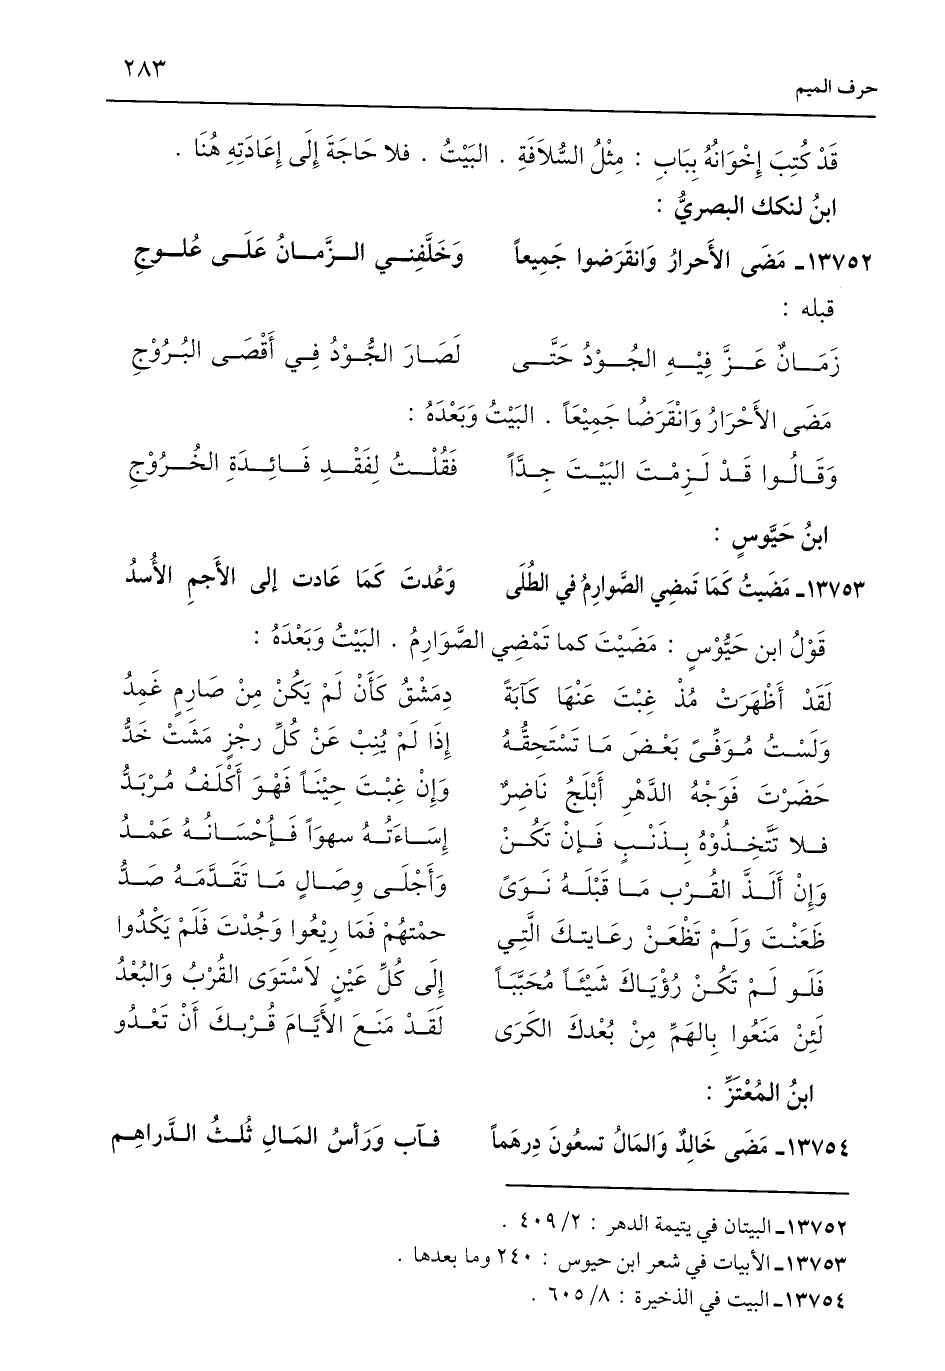 ٢٨٣
حرف الميم
قَدْ كُتِبَ إِخْوَانُهُ بِبَابِ : مِثْلُ السُّلاَفَةِ . البَيْتُ . فلا حَاجَةَ إِلَى إِعَادَتِهِ هُنَا .
ابنُ لنكك البصريُّ :
١٣٧٥٢ـ مَضَى الأَحرارُ وَانقَرَضوا جَمِيعاً وَخَلَّفِني الزَّمانُ عَلَى عُلوجِ
قبله :
زَمَانٌ عَزَّ فِيْهِ الجُوْدُ حَتَّى لَصَارَ الجُّوْدُ فِي أَقْصَى البُرُوْجِ
مَضَى الأَحْرَارُ وَانْقَرَضُا جَمِيْعَاً . البَيْتُ وَبَعْدَهُ :
وَقَالُوا قَدْ لَزِمْتَ البَيْتَ جِدَّاً فَقُلْتُ لِفَقْدِ فَائِدَةِ الخُرُوْجِ
ابنُ حَيَّوسٍ :
١٣٧٥٣ـ مَضَيتُ كَمَا تَمضِي الصَّوارِمُ في الطُلَى وَعُدتَ كَمَا عَادت إلى الأَجمِ الأُسدُ
قَوْلُ ابن حَيُّوْسٍ : مَضَيْتَ كما تَمْضِي الصَّوَارِمُ . البَيْتُ وَبَعْدَهُ :
لَقَدْ أَظْهَرَتْ مُذْ غِبْتَ عَنْهَا كَآبَةً دِمَشْقُ كَأَنْ لَمْ يَكُنْ مِنْ صَارِمٍ غَمِدُ
وَلَسْتُ مُوَفِّىً بَعْضَ مَا تَسْتَحِقُّهُ إِذَا لَمْ يُنِبْ عَنْ كُلِّ رِجْزٍ مَشَتْ خَدُّ
حَضَرْتَ فَوَجْهُ الدَّهْرِ أَبْلَجُ نَاضِرٌ وَإِنْ غِبْتَ حِيْنَاً فَهْوَ أَكْلَفُ مُرْبَدُّ
فلا تَتَّخِذُوْهُ بِذَنْبٍ فَإِنْ تَكُنْ إِسَاءَتُهُ سهوَاً فَإُحْسَانُهُ عَمْدُ
وَإِنْ أَلَذَّ القُرْبِ مَا قَبْلَهُ نَوَىً وَأَجْلَى وِصَالٍ مَا تَقَدَّمَهُ صَدُّ
ظَعَنْتَ وَلَمْ تَظْعَنْ رِعَايتكَ الَّتِي حمتهُمْ فَمَا رِيْعُوا وَجُدْتَ فَلَمْ يَكْدُوا
فَلَو لَمْ تَكُنْ رُؤْيَاكَ شَيْئَاً مُحَبَّبَاً إِلَى كُلِّ عَيْنٍ لاَسْتَوَى القُرْبُ وَالبُعْدُ
لَئِنْ مَنَعُوا بِالهَمِّ مِنْ بُعْدكَ الكَرَى لَقَدْ مَنَعَ الأيَّامَ قُرْبكَ أَنْ تَعْدُو
ابنُ المُعْتَزِّ :
١٣٧٥٤ـ مَضَى خَالِدٌ وَالمَالُ تسعُونَ دِرهَماً فآب وَرَأسُ المَالِ ثُلثُ الدَّراهِم
١٣٧٥٢ـ البيتان في يتيمة الدهر : ٢/ ٤٠٩ .
١٣٧٥٣ـ الأبيات في شعر ابن حيوس : ٢٤٠ وما بعدها .
١٣٧٥٤ـ البيت في الذخيرة : ٨/ ٦٠٥ .